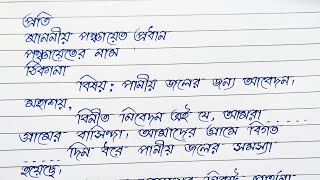 প্রতি
মাননীয় পঞ্চায়েত প্রধান
পঞ্চায়েতের নাম
ঠিকানা
বিষয়: পানীয় জলের জন্য আবেদন।
মহাশয়,
বিনীত নিবেদন এই যে, আমরা .....
গ্রামের বাসিন্দা। আমাদের গ্রামে বিগত
..... দিন ধরে পানীয় জলের সমস্যা
হয়েছে।